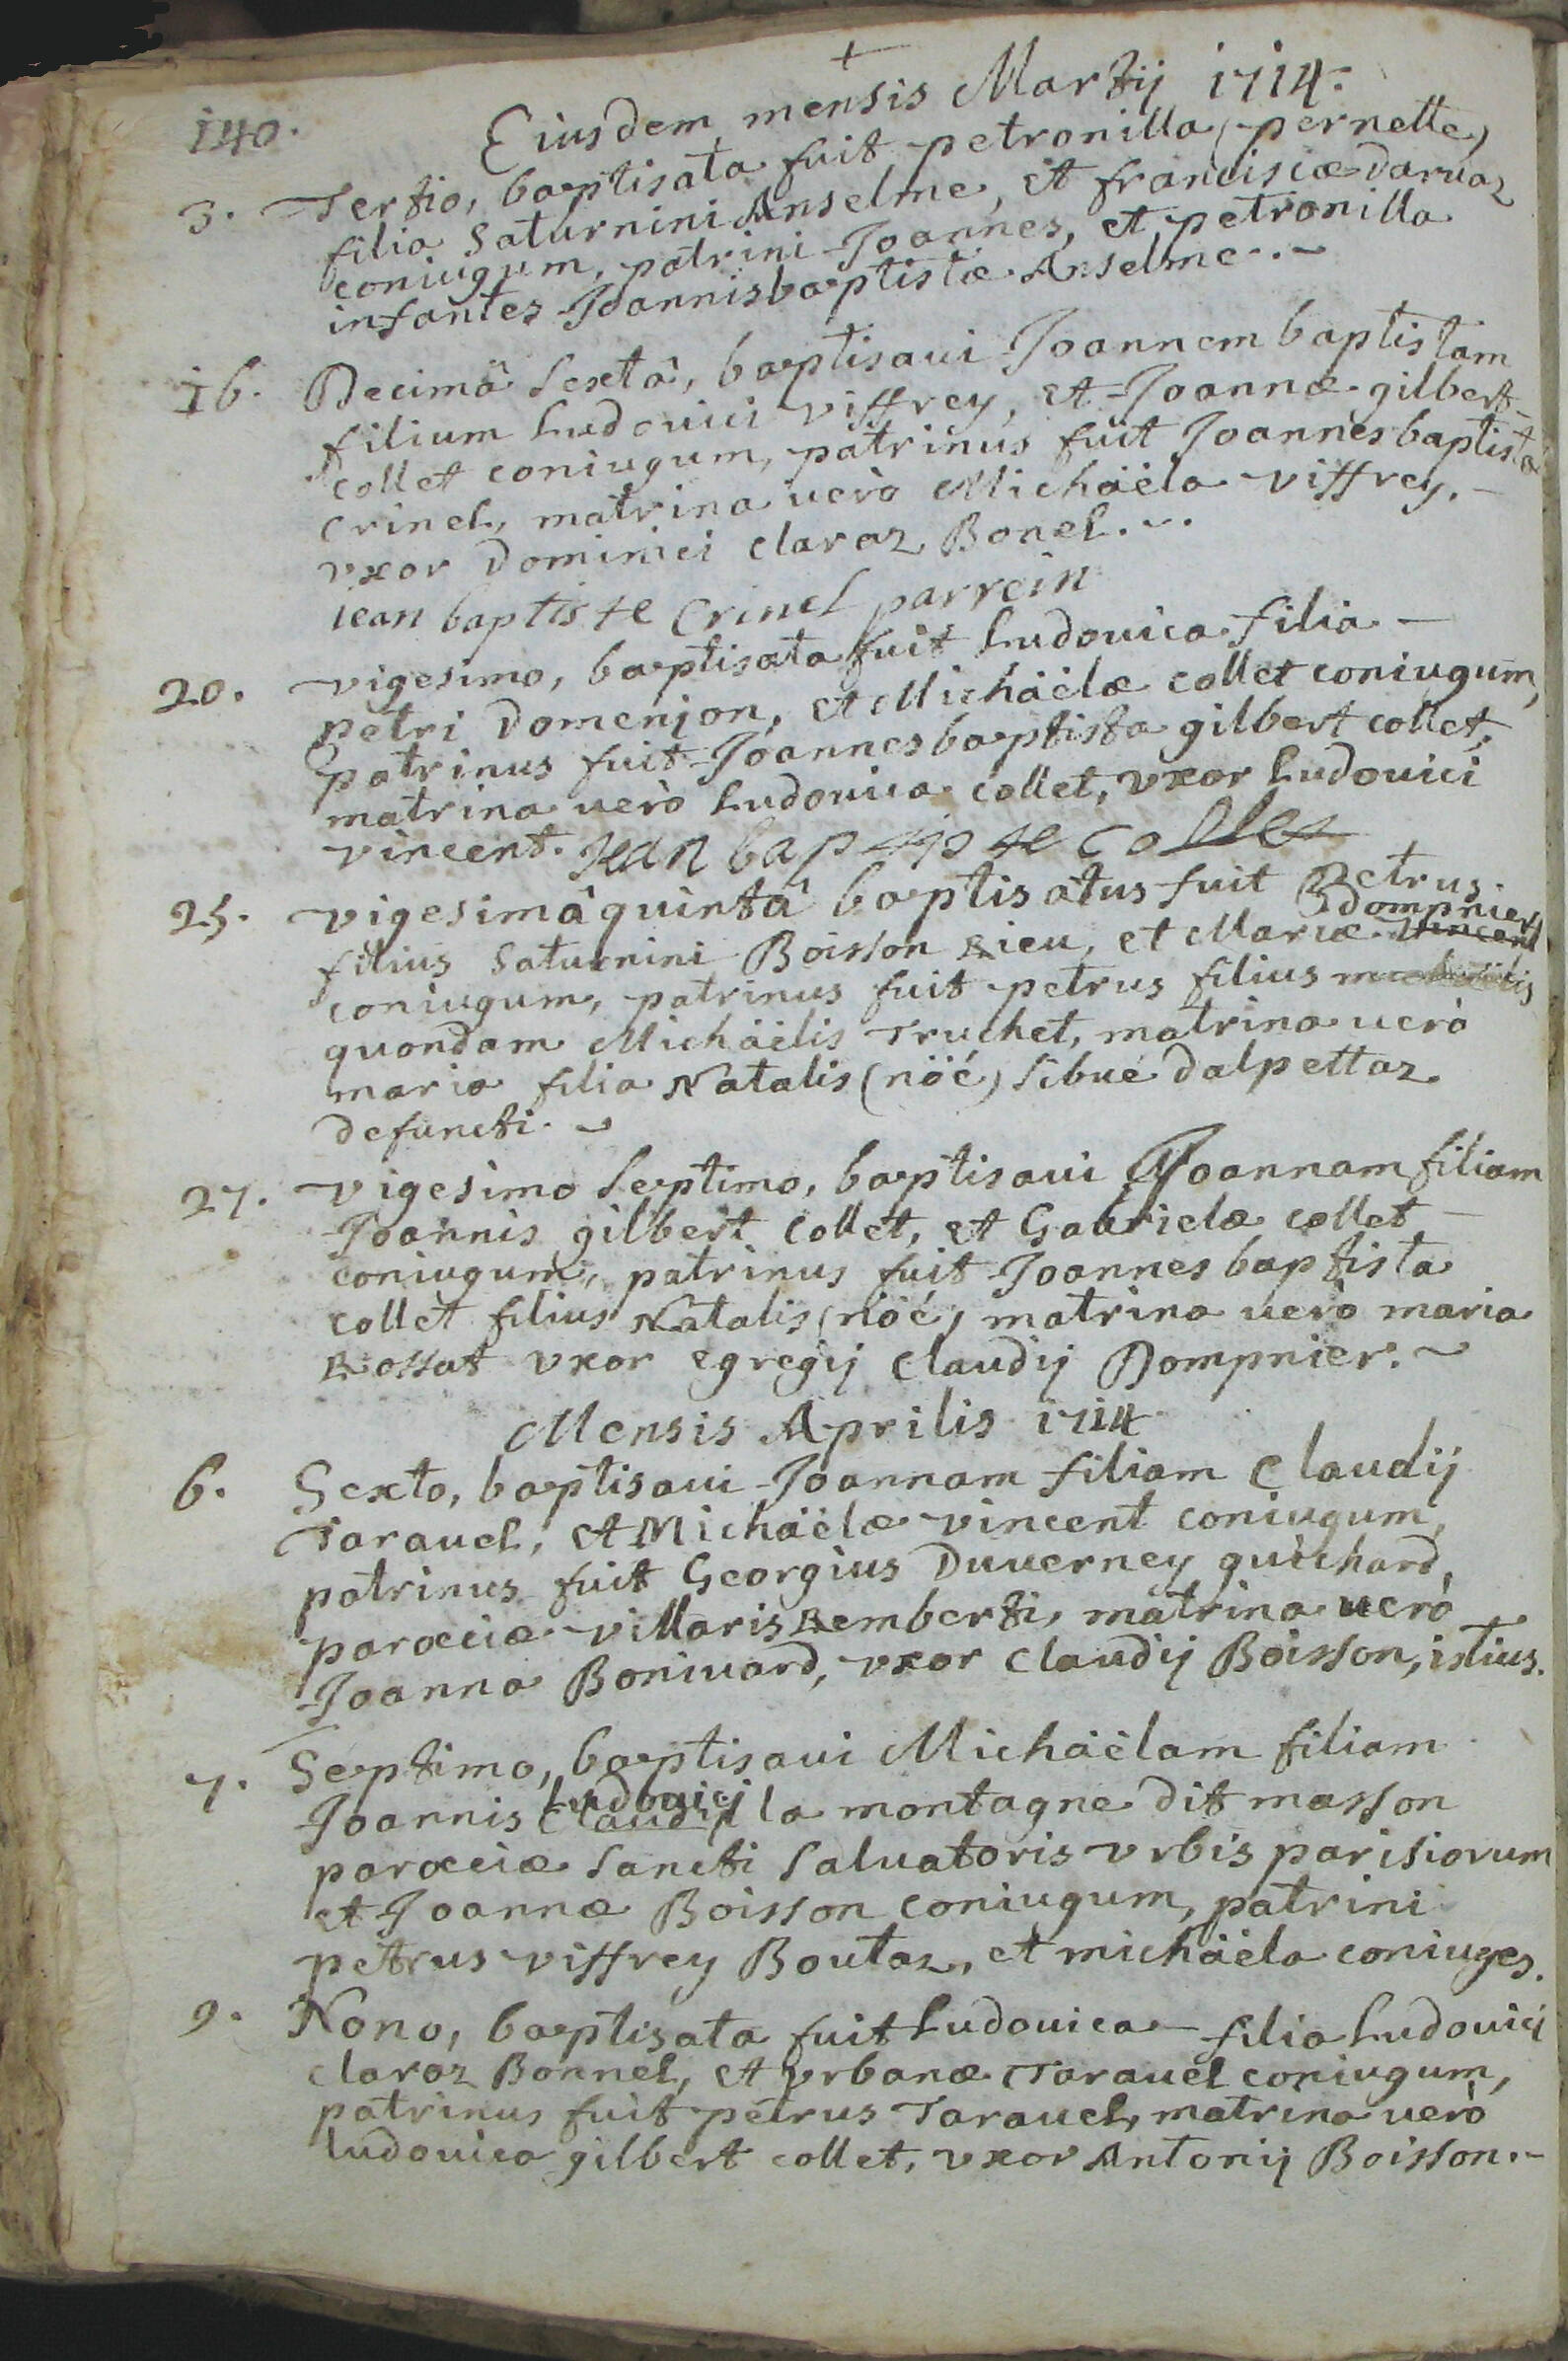 +
140.
Eiusdem mensis Martij 1714.
3. Tertio, baptisata fuit petronilla (pernette)
filia Saturnini Anselme, et franciscæ Darvaz
coniugum, patrini Joannes, et petronilla
infantes Joannisbaptistæ Anselme.
16. Decimâ sextâ, baptisaui Joannem baptistam
filium Ludouici viffrey, et Joannæ gilbert
collet coniugum, patrinus fuit Joannesbaptista
Crinel, matrina uerò Michäela viffrey.
vxor Dominici claraz Bonel.
iean baptiste Crinel parrein
20. vigesimo, baptisata fuit Ludouica filia
petri Domenjon, et Michäelæ collet coniugum,
patrinus fuit Joannesbaptista gilbert collet,
matrina uerò Ludouica collet, vxor Ludouici
vincent. Jean baptiste collet
25. vigesimâquintâ baptisatus fuit Petrus
filius Saturnini Boisson Rieu, et Mariæ vincent dompnier
coniugum, patrinus fuit petrus filius michäelis
quondam Michäelis Truchet, matrina uerò
maria filia Natalis (nöé) Sibué dalpettaz
defuncti.
27. vigesimo septimo, baptisaui Joannam filiam
Joannis gilbert collet, et Gabrielæ collet
coniugum, patrinus fuit Joannes baptista
collet filius Natalis (nöé) matrina uerò maria
Rossat vxor egregij claudij Dompnier.
Mensis Aprilis 1714
6. Sexto, baptisaui Joannam filiam Claudij
Tarauel, et Michäelæ vincent coniugum,
patrinus fuit Georgius Duuerney guichard,
parœciæ villaris Remberti, matrina uerò
Joanna Boniuard, vxor claudij Boisson, istius.
7. Septimo, baptisaui Michäelam filiam
Joannis Claudij Ludouici la montagne dit masson
parœciæ sancti saluatoris vrbis parisiorum
et Joannæ Boisson coniugum, patrini
petrus viffrey Boutaz, et michäela coniuges.
9. Nono, baptisata fuit Ludouica filia Ludouici
claraz Bonnel, et vrbanæ Tarauel coniugum,
patrinus fuit petrus Tarauel, matrina uerò
ludouica gilbert collet, vxor Antonij Boisson.